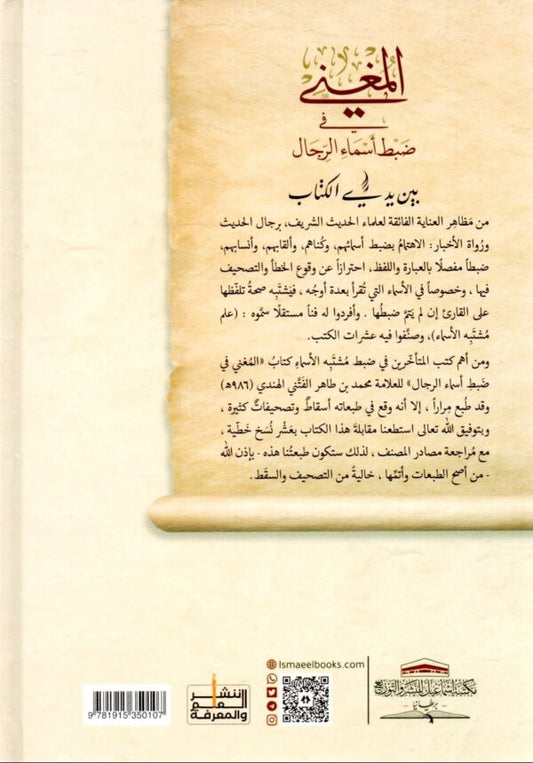 المُغْنِي
في
ضَبْط أَسْمَاءِ الرِّجَال
بين يدي الكتاب
من مَظاهِر العناية الفائقة لعلماء الحديث الشريف، برجال الحديث
ورُواة الأخبار: الاهتمامُ بضبط أسمائهم، وكُناهم، وألقابهم، وأنسابهم،
ضبطاً مفصلًا بالعبارة واللفظ، احترازاً عن وقوع الخطأ والتصحيف
فيها، وخصوصاً في الأسماء التي تُقرأ بعدة أوجُه، فيَشتَبِه صحةُ تلفّظها
على القارئ إن لم يَتمَّ ضبطُها. وأفردوا له فناً مستقلًا سمَّوه : (علم
مُشْتَبِه الأسماء)، وصنَّفوا فيه عشرات الكتب.
ومن أهم كتب المتأخرين في ضبط مُشتَبِه الأسماءِ كتابُ «المُغني في
ضَبطِ أسماء الرجال» للعلامة محمد بن طاهر الفَتَّني الهندي (٩٨٦هـ)
وقد طُبع مِراراً ، إلا أنه وقع في طبعاته أسقاطٌ وتصحيفاتٌ كثيرة ،
وبتوفيق الله تعالى استطعنا مقابلةَ هذا الكتاب بعَشْر نُسَخ خَطّية،
مع مُراجعة مصادر المصنف ، لذلك ستكون طبعتُنا هذه - بإذن الله
- من أصح الطبعات وأتمّها ، خاليةً من التصحيف والسقَط.
Ismaeelbooks.com
مكتبة إسماعيل للنشر والتوزيع
- بريطانيا -
ننشر
العلم
والمعرفة
9 781915 350107